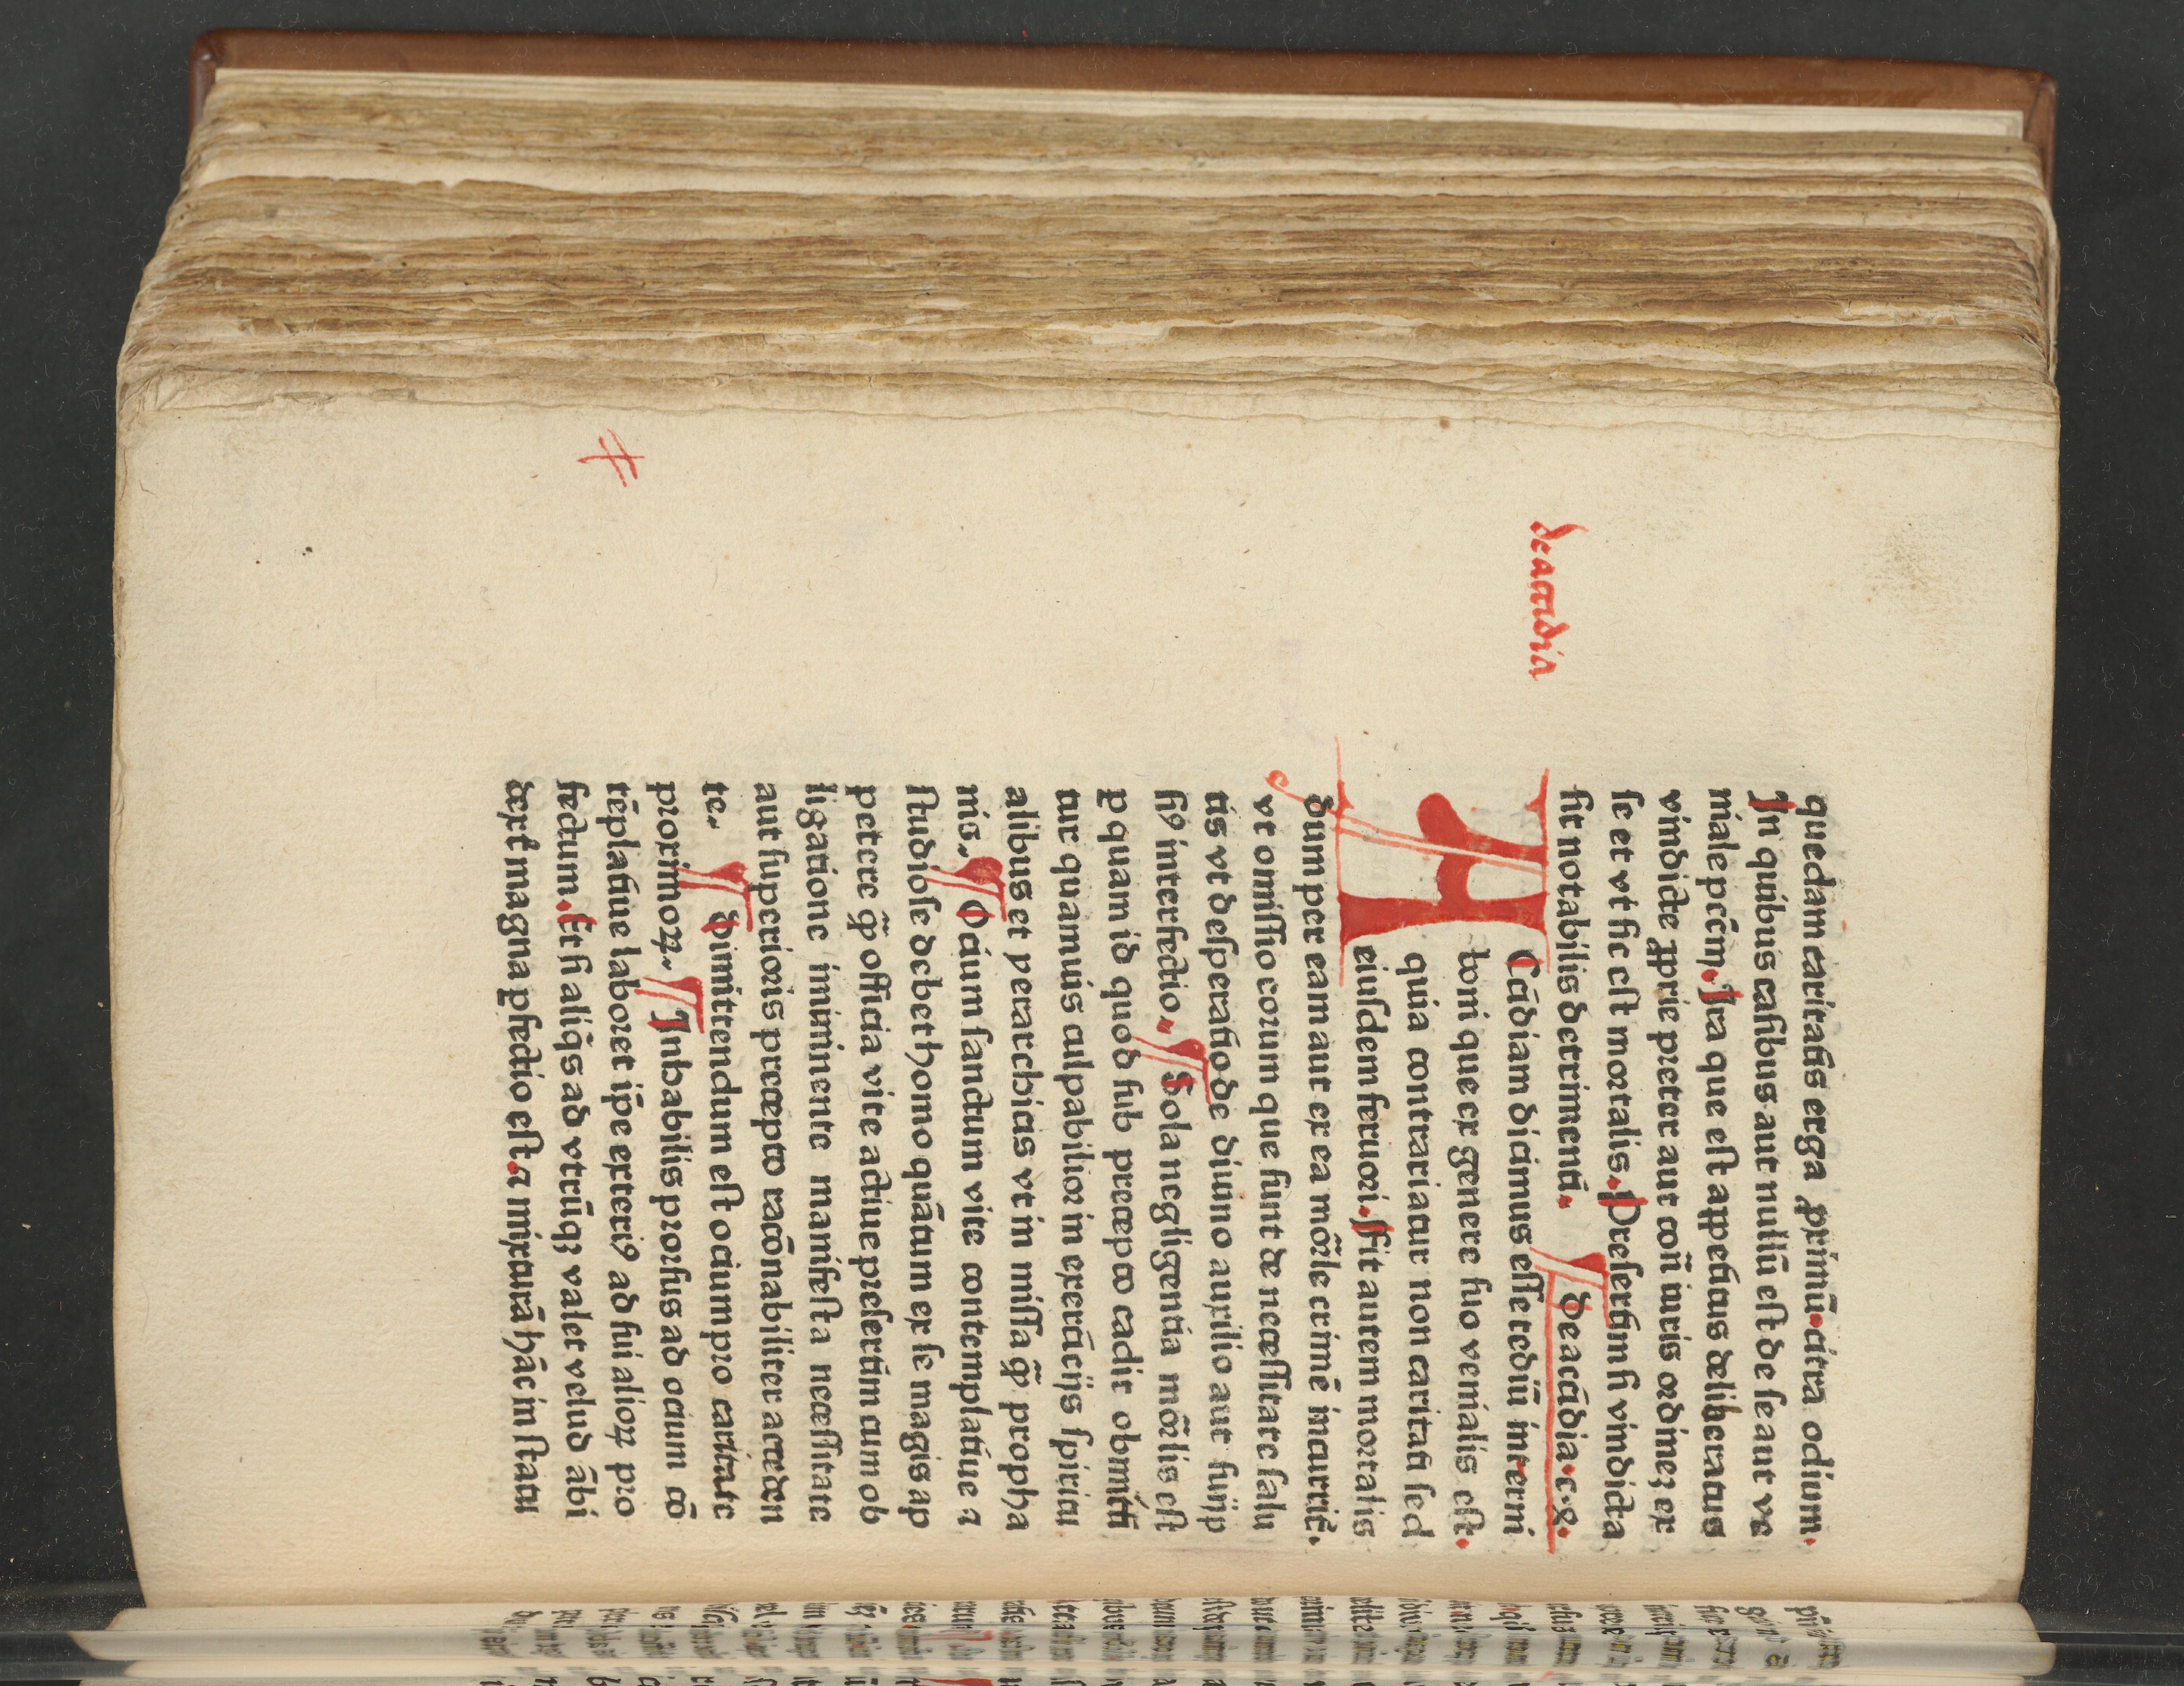 quedam caritatis erga primū. citra odium.
In quibus casibus aut nullū est de se aut ve
niale pctm̄. Ira que est appetitus deliberatus
vindicte ꝓprie preter aut cōtͣ iuris ordinez ex
se et vt sic est mortalis. Presertim si vindicta
sit notabilis detrimenti. ¶ De accidia. c. 8.
de accidia
ACcidiam dicimus esse tediū interni
boni que ex genere suo venialis est.
quia contrariatur non caritati sed
eiusdem feruori. Fit autem mortalis
dum per eam aut ex ea mortale crimē incurrit̄.
vt omissio eorum que sunt de necessitate salu
tis vt desperatio de diuino auxilio aut sui ip
siꝰ interfectio. ¶ Sola negligentia mōlis est
ꝑ quam id quod sub precepto cadit obmitti
tur quamuis culpabilior in exercicijs spiritu
alibus et perarchicis vt in missa q̄ꝫ propha
nis. ¶ Ocium sanctum vite contemplatiue ⁊
studiose debet homo quātum ex se magis ap
petere q̄ꝫ officia vite actiue presertim cum ob
ligatione iminente manifesta necessitate
aut superioris precepto racōnabiliter acceden
te. ¶ Dimittendum est ocium pro caritate
proximoꝝ. ¶ Inhabilis prorsus ad ocium cō
tēplatiue laboret ip̄e exteriꝰ ad sui alioꝝ pro
fectum. Et si aliq̄s ad vtrūqꝫ valet velud ābi
dextͥ magna ꝑfectio est. ⁊ mixturā hāc in statu